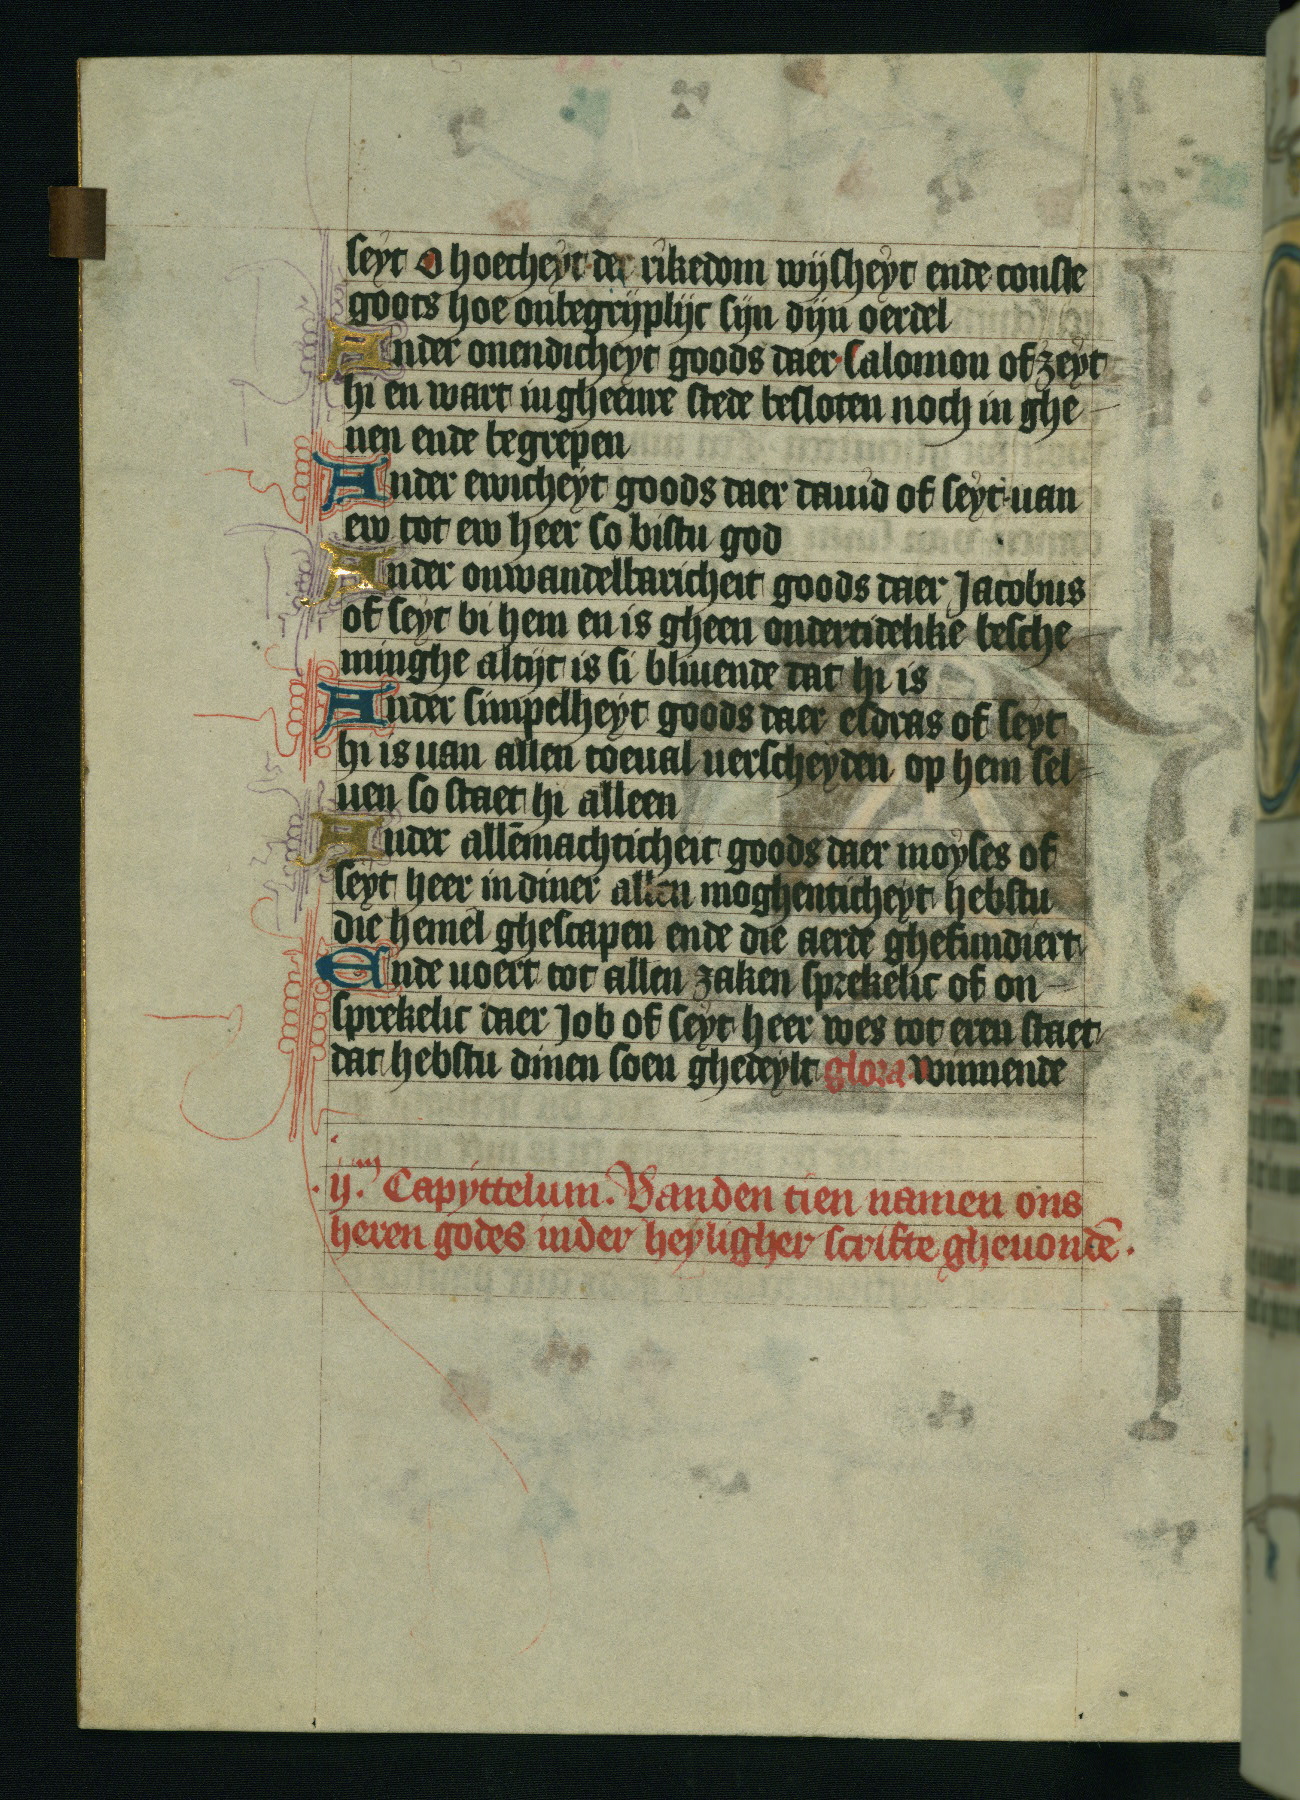 seyt O hoecheyt der rikedom wijsheyt ende conste
goots hoe onbegrijplijc sijn dijn oerdel
Ander onendicheyt goods daer salomon of zeyt
hi en wart in gheenre stede besloten noch in ghe
nen ende begrepen
Ander ewicheyt goods daer dauid of seyt uan
ew tot ew heer so bistu god
Ander onwandelbaricheit goods daer Jacobus
of seyt bi hem en is gheen ondertidelike besche
minghe altijt is si bliuende dat hi is
Ander simpelheyt goods daer esdras of seyt
hi is uan allen toeual uerscheyden op hem sel
uen so staet hi alleen
Ander allēmachticheit goods daer moyses of
seyt heer in diner allen moghenticheyt hebstu
die hemel ghescapen ende die aerde ghefundiert
Ende uoert tot allen zaken sprekelic of on
sprekelic daer Job of seyt heer wes tot eren staet
dat hebstu dinen soen ghedeylt glora winnende
.ij.m Capyttelum. Vanden tien namen ons
heren godes inder heyligher scrifte gheuondē.